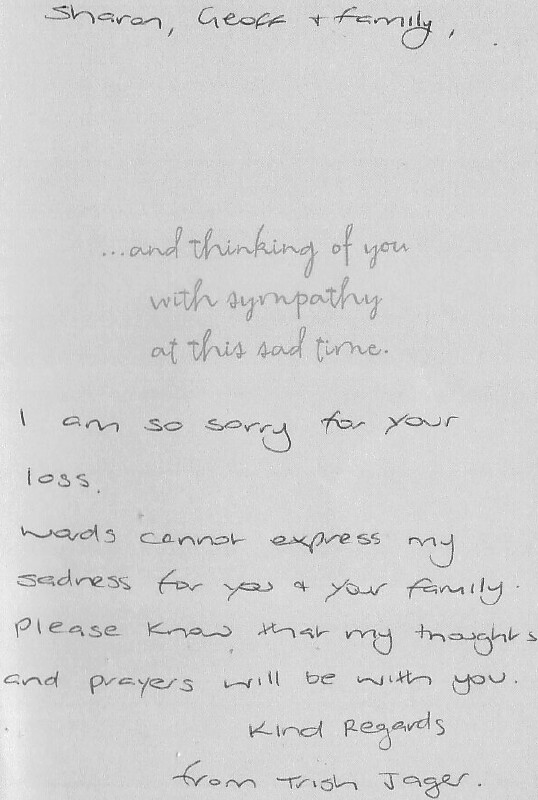 Sharon, Geoff + family,
...and thinking of you
with sympathy
at this sad time.
I am so sorry for your
loss.
Words cannot express my
sadness for you + your family.
Please know that my thoughts
and prayers will be with you.
Kind Regards
from Trish Jager.